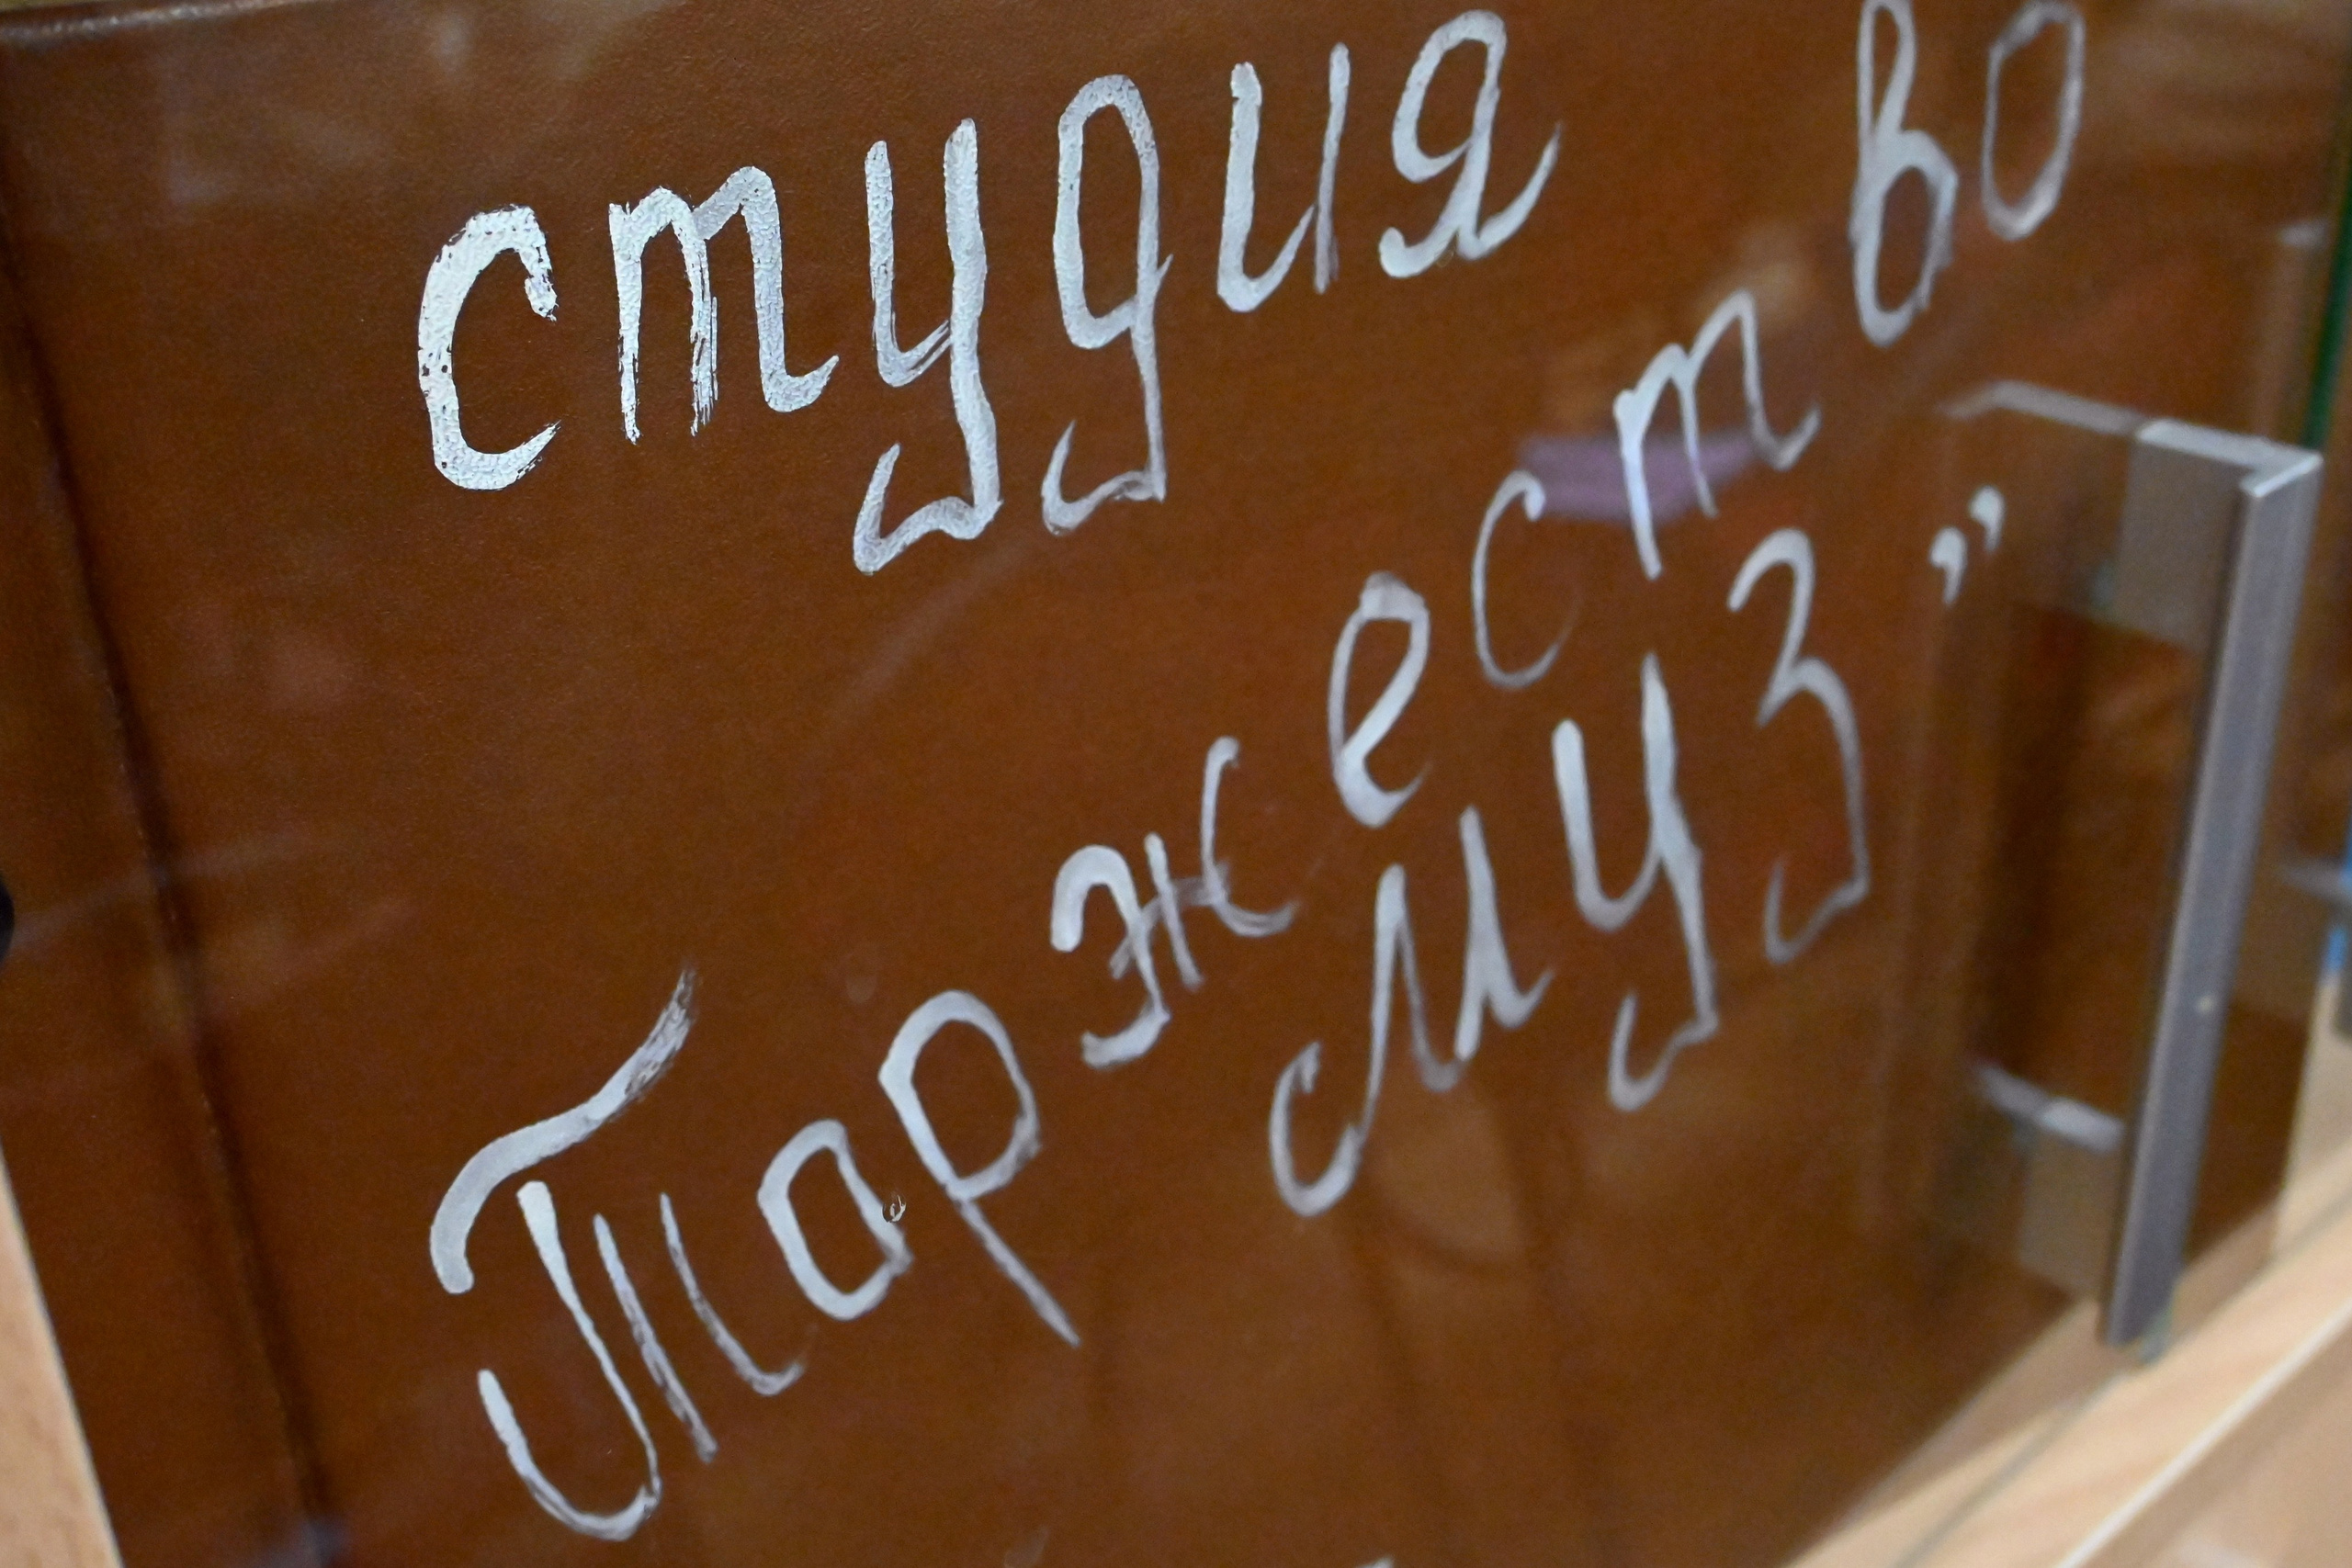 студия
Торжество
муз”